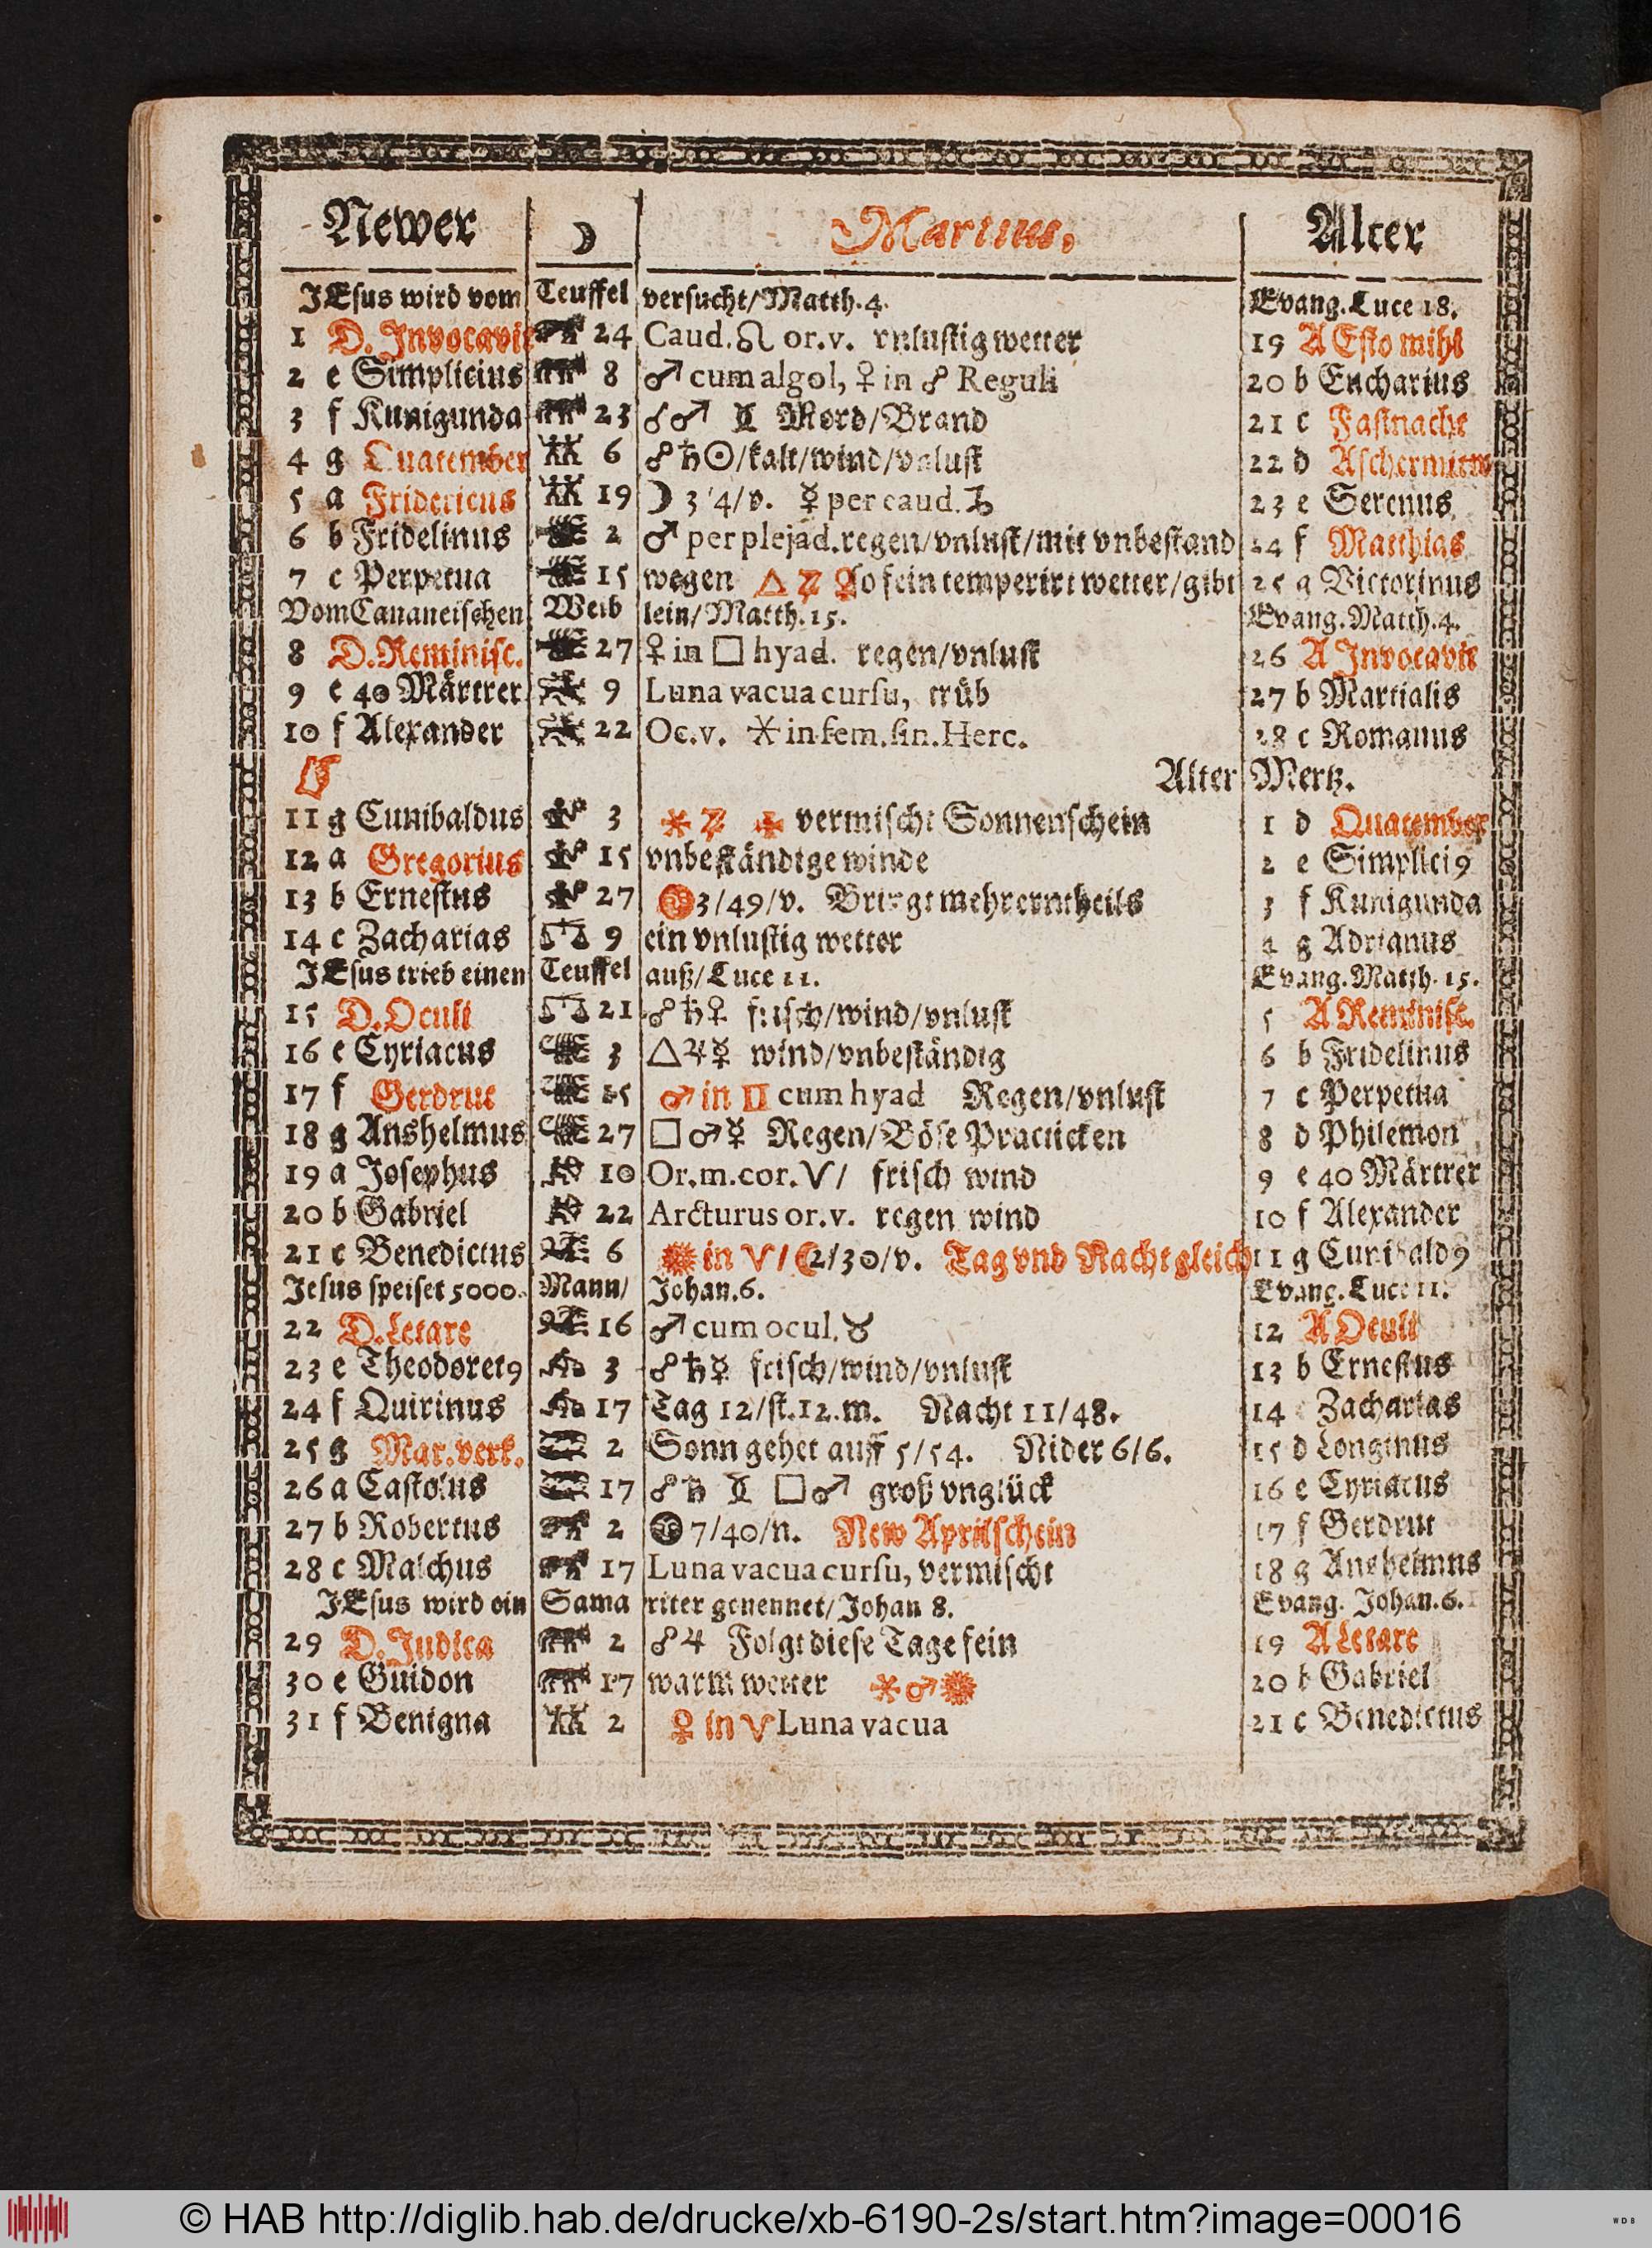 Newer ☽ Martius, Alter
JEsus wird vom Teuffel versucht/Matth.4. Evang.Luce 18.
1 D. Invocavit 24 Caud.♌ or.v. vnlustig wetter 19 A Esto mihi
2 e Simplicius 8 ♂ cum algol, ♀ in ☍ Reguli 20 b Eucharius
3 f Kunigunda 23 ☌♂ Mord/Brand 21 c Fastnacht
4 g Quatember 6 ☍♄☉/kalt/wind/vnlust 22 d Aschermitw
5 a Fridericus 19 ☽ 3/4/v. ☿ per caud.♑ 23 e Serenus
6 b Fridelinus 2 ♂ per plejad.regen/vnlust/mit vnbestand 24 f Matthias
7 c Perpetua 15 wegen △ ♃ ♀ so fein temperirt wetter/gibt 25 g Victorinus
Vom Cananeischen Weib lein/Matth.15. Evang.Matth.4.
8 D.Reminisc. 27 ♀ in □ hyad. regen/vnlust 26 A Invocavit
9 e 40 Märtrer 9 Luna vacua cursu, trüb 27 b Martialis
10 f Alexander 22 Oc.v. ⚹ in fem.sin.Herc. 28 c Romanus
Alter Mertz.
11 g Cunibaldus 3 ⚹ ♃ vermischt Sonnenschein 1 d Quatember
12 a Gregorius 15 vnbeständige winde 2 e Simplici9
13 b Ernestus 27 3/49/v. Bringt mehrerntheils 3 f Kunigunda
14 c Zacharias ♎ 9 ein vnlustig wetter 4 g Adrianus
JEsus trieb einen Teuffel auß/Luce 11. Evang.Matth.15.
15 D.Oculi ♎ 21 ☍♄♀ frisch/wind/vnlust 5 A Reminisc.
16 e Cyriacus 3 △♃☿ wind/vnbeständig 6 b Fridelinus
17 f Gerdrut 15 ♂ in ♊ cum hyad Regen/vnlust 7 c Perpetua
18 g Anshelmus 27 □♂☿ Regen/Böse Practicken 8 d Philemon
19 a Josephus 10 Or.m.cor.♈/ frisch wind 9 e 40 Märtrer
20 b Gabriel 22 Arcturus or.v. regen wind 10 f Alexander
21 c Benedictus 6 ☉ in ♈/☾ 2/30/v. Tag vnd Nacht gleich 11 g Cunibald9
Jesus speiset 5000. Mann/ Johan.6. Evang.Luce 11.
22 D.Letare 16 ♂ cum ocul.♉ 12 A Oculi
23 e Theodoret9 3 ☍♄☿ frisch/wind/vnlust 13 b Ernestus
24 f Quirinus 17 Tag 12/st.12.m. Nacht 11/48. 14 c Zacharias
25 g Mar.verk. 2 Sonn gehet auff 5/54. Nider 6/6. 15 d Longinus
26 a Castolus 17 ☍♄ □♂ groß vnglück 16 e Cyriacus
27 b Robertus 2 7/40/n. New Aprilschein 17 f Gerdrut
28 c Malchus 17 Luna vacua cursu, vermischt 18 g Anshelmus
JEsus wird ein Sama riter genennet/Johan 8. Evang. Johan.6.
29 D.Judica 2 ☍♃ Folgt diese Tage fein 19 A Letare
30 e Guidon 17 warm wetter ⚹♂☉ 20 b Gabriel
31 f Benigna 2 ♀ in ♈ Luna vacua 21 c Benedictus
© HAB http://diglib.hab.de/drucke/xb-6190-2s/start.htm?image=00016
WDB